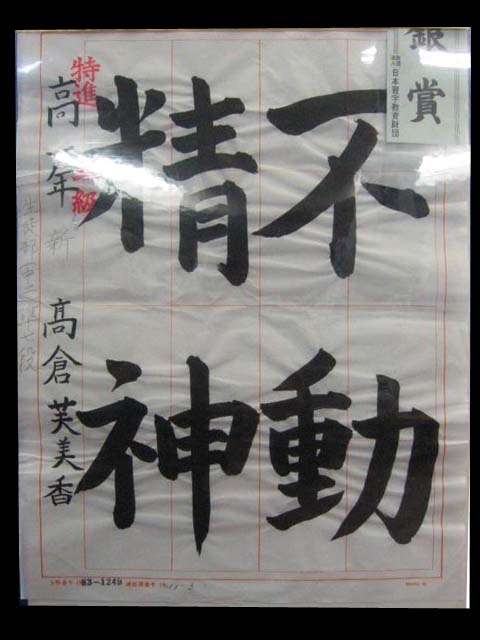 不動
精神
特進
級
高
年
高倉芙美香
銀賞
日本習字教育財団
63-1249